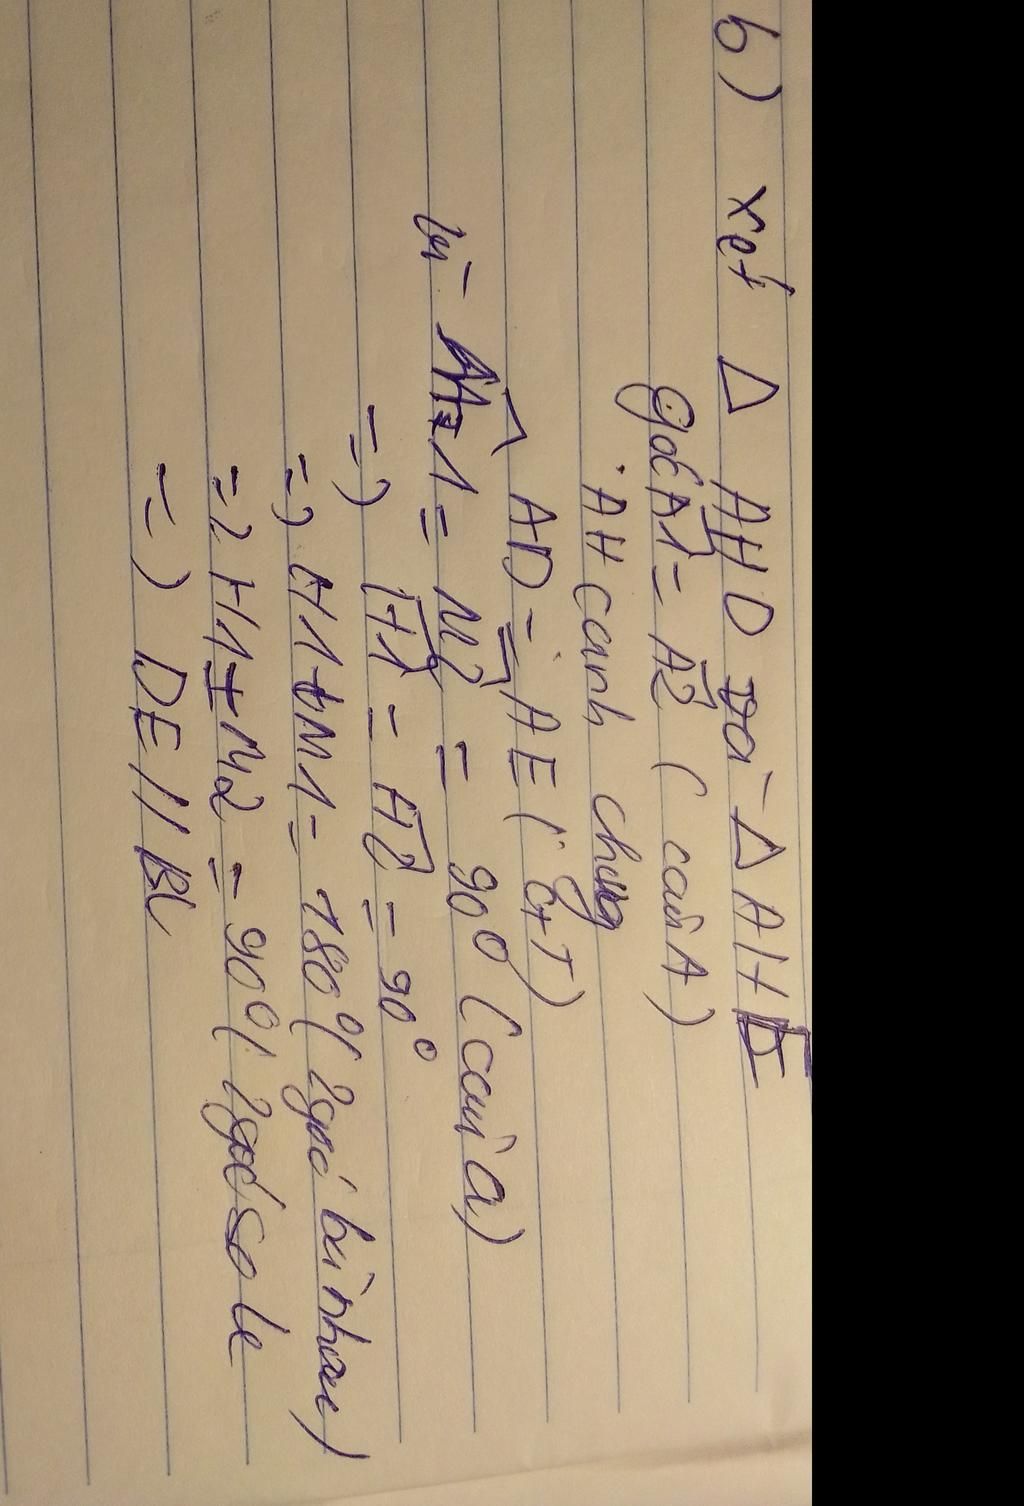 b) xét Δ AHD và Δ AHE
góc A1 = A2 ( câu A )
AH cạnh chung
AD = AE ( GT )
vì M1 = M2 = 90° ( câu a )
=> H1 = H2 = 90°
=> H1 + M1 = 180° ( 2 góc bù nhau )
=> H1 = M2 = 90° ( 2 góc so le
=> DE // BC